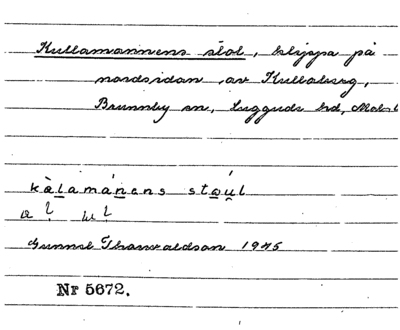 Kullamannens stol, klippa på
nordsidan av Kullaberg,
Brunnby sn, Luggude hd, Malm
kàlamánens staúl
Gunnel Thorvaldson 1975
Nr 5672.